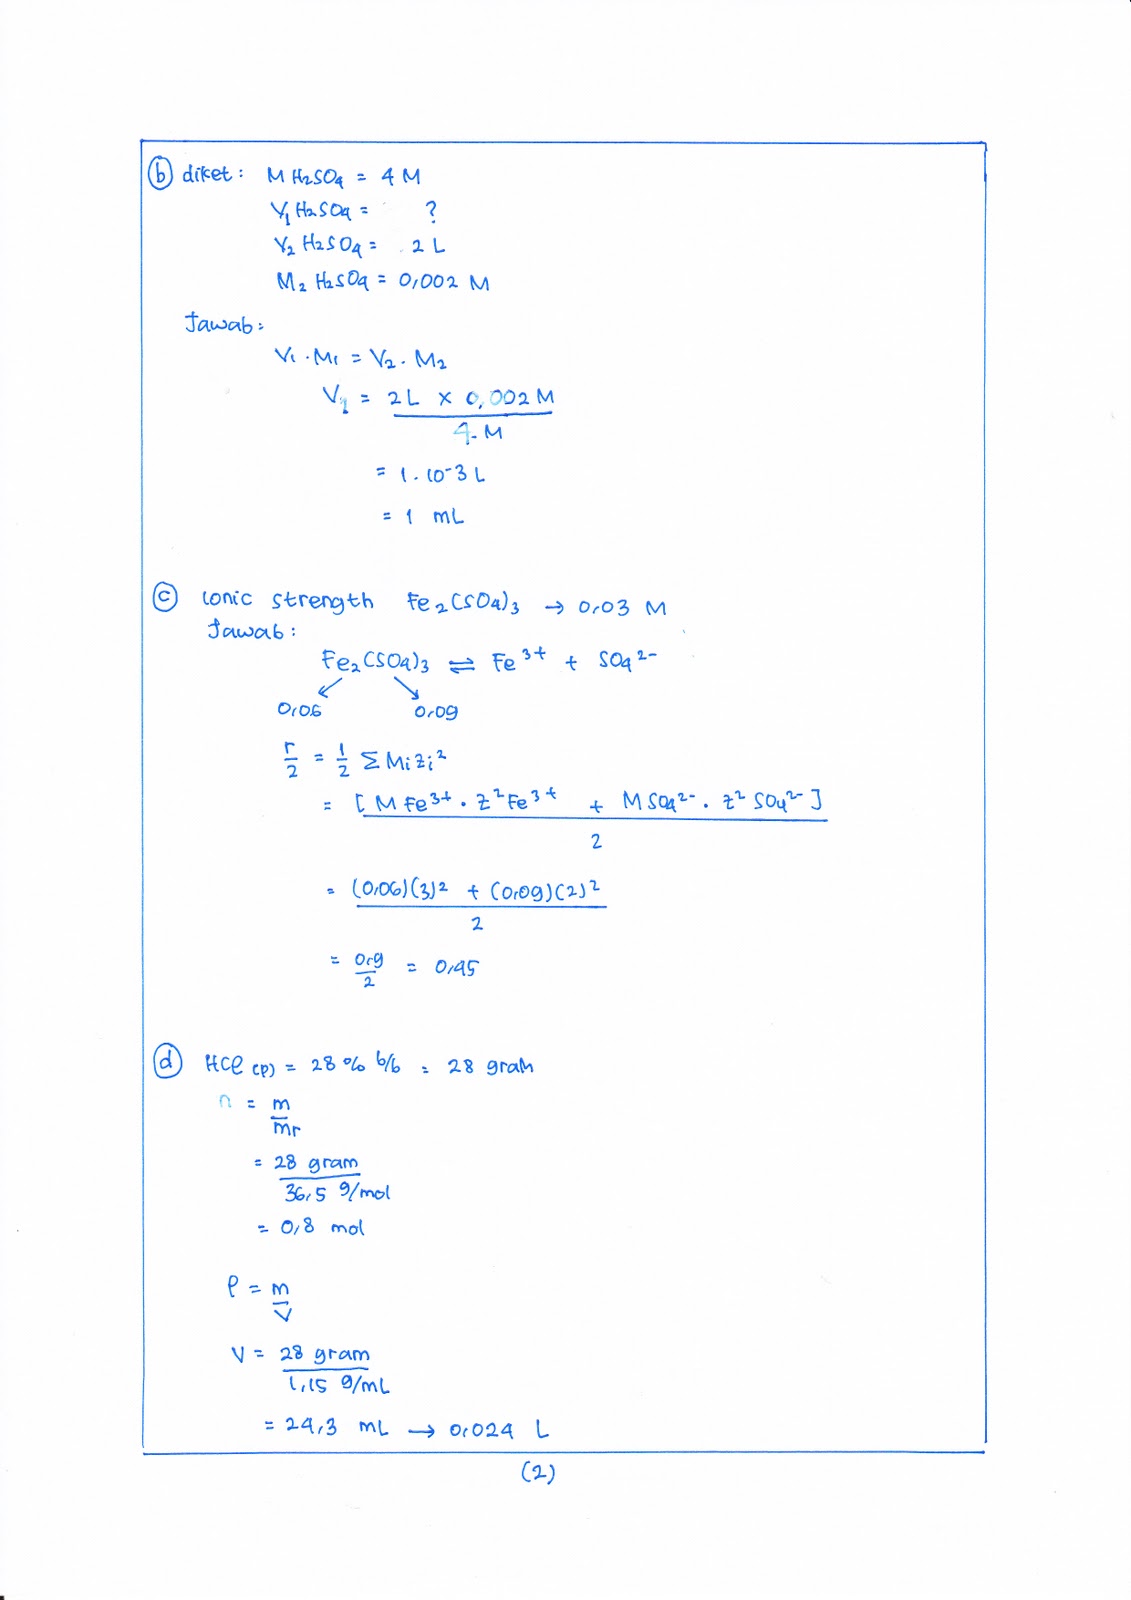 (b) diket : M H₂SO₄ = 4 M
V₁ H₂SO₄ = ?
V₂ H₂SO₄ = 2 L
M₂ H₂SO₄ = 0,002 M
Jawab :
V₁ . M₁ = V₂ . M₂
V₁ = 2 L x 0,002 M
4 M
= 1 . 10⁻³ L
= 1 mL
(c) Ionic strength Fe₂(SO₄)₃ → 0,03 M
Jawab :
Fe₂(SO₄)₃ ⇌ Fe³⁺ + SO₄²⁻
0,06 0,09
r/2 = 1/2 Σ Mi zi²
= [ M Fe³⁺ . Z² Fe³⁺ + M SO₄²⁻ . Z² SO₄²⁻ ]
2
= (0,06)(3)² + (0,09)(2)²
2
= 0,9/2 = 0,45
(d) HCl (p) = 28 % b/b = 28 gram
n = m
mr
= 28 gram
36,5 g/mol
= 0,8 mol
ρ = m
V
V = 28 gram
1,15 g/mL
= 24,3 mL → 0,024 L
(2)